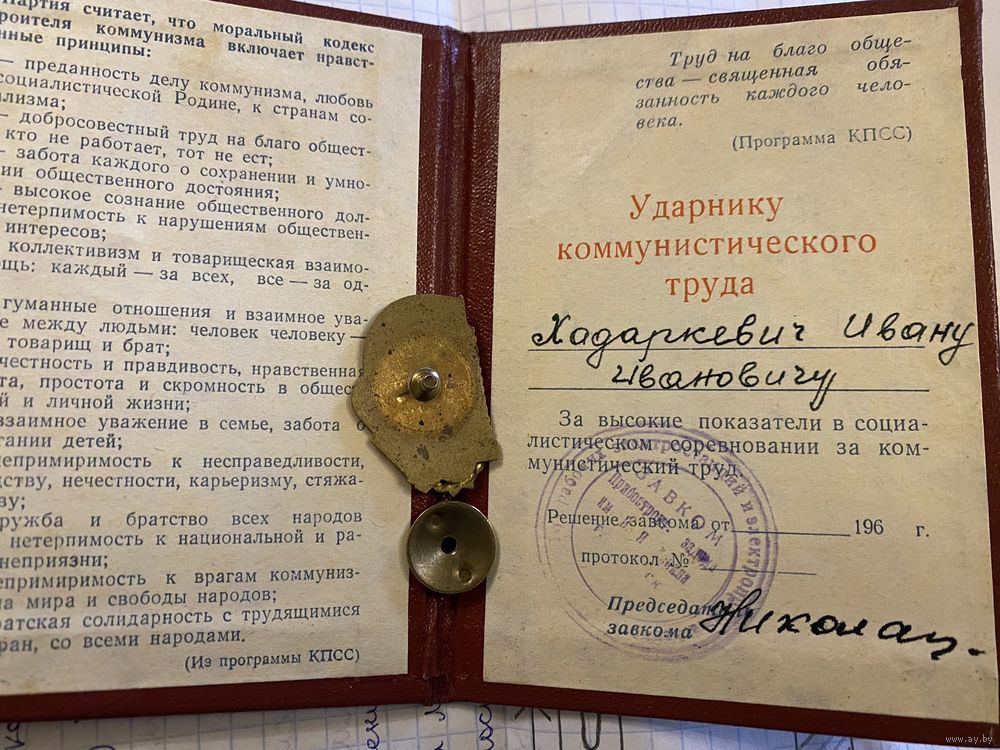 Партия считает, что моральный кодекс
строителя коммунизма включает нравст-
нные принципы:
— преданность делу коммунизма, любовь
социалистической Родине, к странам со-
ализма;
— добросовестный труд на благо общест-
кто не работает, тот не ест;
— забота каждого о сохранении и умно-
ии общественного достояния;
высокое сознание общественного дол-
нетерпимость к нарушениям обществен-
интересов;
коллективизм и товарищеская взаимо-
ощь: каждый — за всех, все — за од-
гуманные отношения и взаимное ува-
е между людьми: человек человеку —
товарищ и брат;
честность и правдивость, нравственная
та, простота и скромность в общест
й и личной жизни;
взаимное уважение в семье, забота о
тании детей;
непримиримость к несправедливости,
дству, нечестности, карьеризму, стяжа-
ву;
ружба и братство всех народов
нетерпимость к национальной и ра-
неприязни;
епримиримость к врагам коммуниз-
ла мира и свободы народов;
ратская солидарность с трудящимися
ран, со всеми народами.
(Из программы КПСС)
Труд на благо обще-
ства — священная обя-
занность каждого чело-
века.
(Программа КПСС)
Ударнику
коммунистического
труда
Хадаркевич Ивану
Ивановичу
За высокие показатели в социа-
листическом соревновании за ком-
мунистический труд.
Решение завкома от 196 г.
протокол №
Председатель
завкома
ЗАВКОМ
www.ay.by